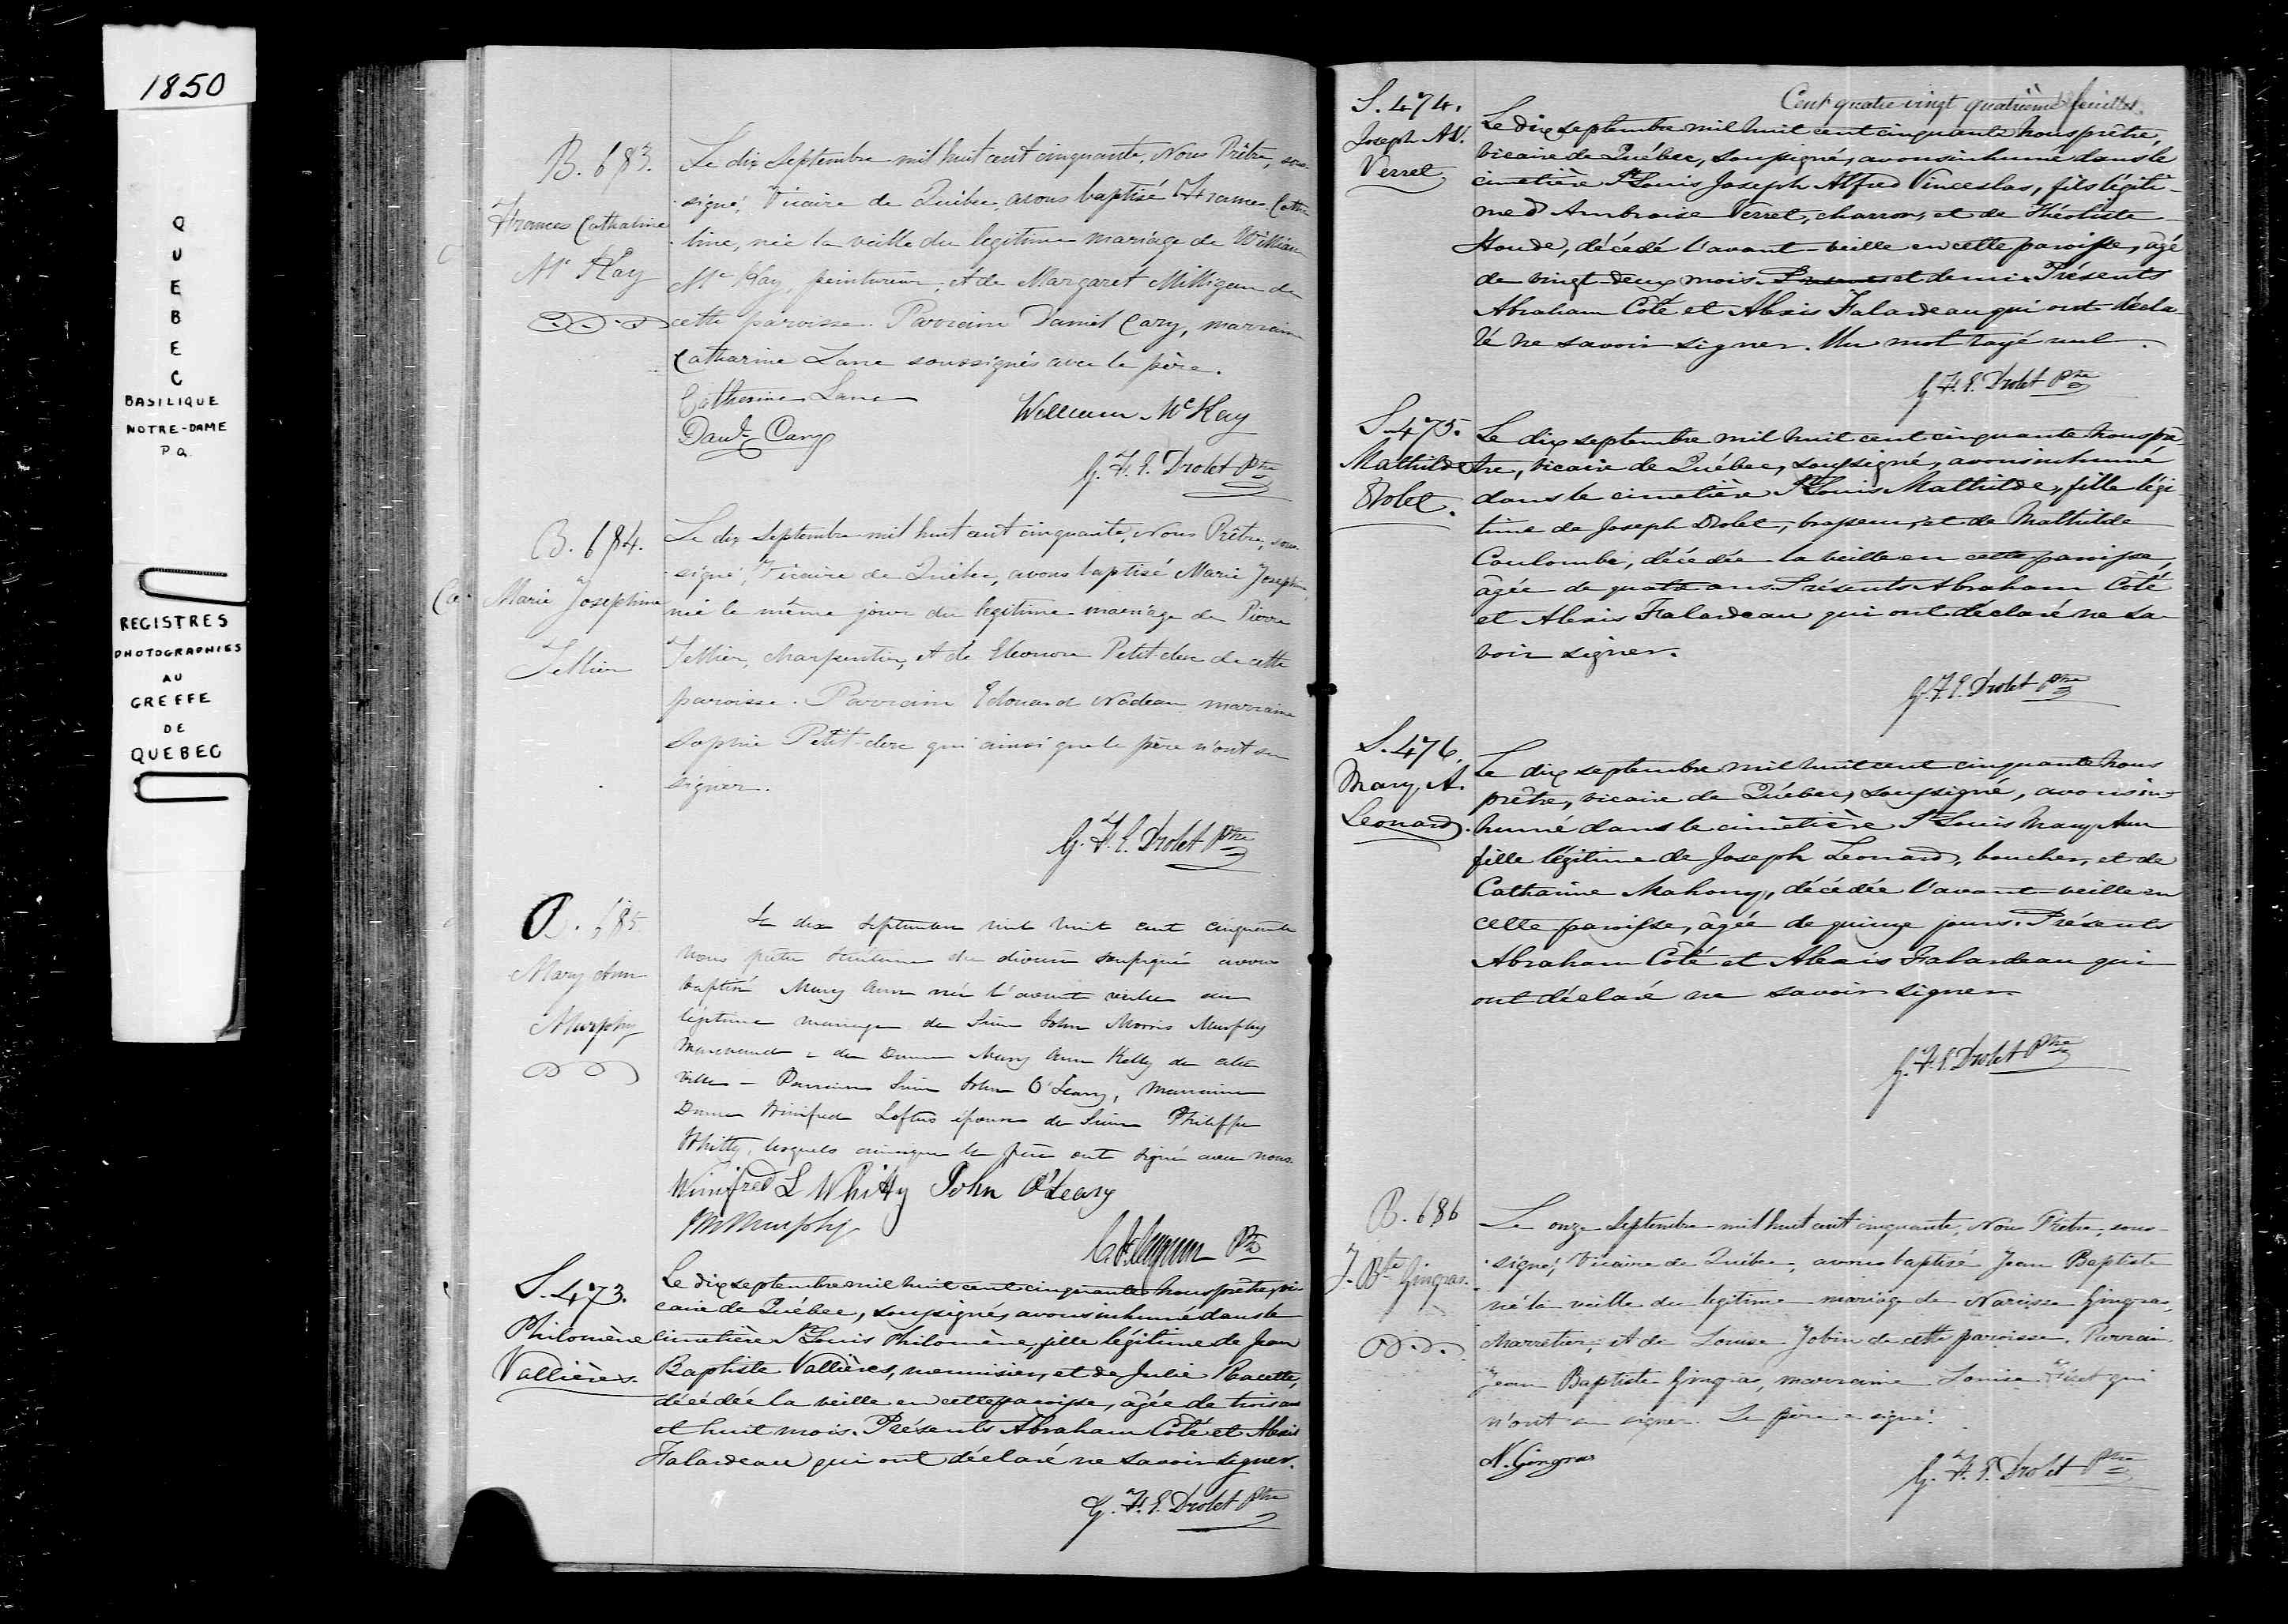 1850
QUEBEC
BASILIQUE
NOTRE-DAME
P.Q.
REGISTRES
PHOTOGRAPHIES
AU
GREFFE
DE
QUEBEC
B. 683.
Frances Catharine
Mc Kay
Le dix Septembre mil huit cent cinquante, Nous Prêtre, sous-
signé, Vicaire de Québec, avons baptisé Frances Catha
rine, née la veille du légitime mariage de William
Mc Kay, peintureur, et de Margaret Milligan de
cette paroisse. Parrain Daniel Cary, marraine
Catharine Lane soussignés avec le père.
Catherine Lane
William McKay
Danl. Cary
G. F. E. Drolet Ptre
B. 684.
Ca.
Marie Josephine
Tellier
Le dix Septembre mil huit cent cinquante, Nous Prêtre, sous-
signé, Vicaire de Québec, avons baptisé Marie Josephine
née le même jour du légitime mariage de Pierre
Tellier, charpentier, et de Eleonore Petit-clerc de cette
paroisse. Parrain Edouard Nadeau, marraine
Sophie Petit-clerc qui ainsi que le père n'ont su
signer.
G. F. E. Drolet Ptre
B. 685
Mary Ann
Murphy
Le dix septembre mil huit cent cinquante
Nous prêtre du diocèse soussigné avons
baptisé Mary Ann née l'avant veille du
légitime mariage de Sieur John Morris Murphy
Marchand & de Dame Mary Ann Kelly de cette
ville – Parrain Sieur John O'Leary, Marraine
Dame Winifred Loftus épouse de Sieur Philippe
Whitty, lesquels ainsi que le père ont signé avec nous.
Winifred L Whitty John O'Leary
JM Murphy
Ptre
S. 473.
Philomène
Vallières.
Le dix septembre mil huit cent cinquante nous prêtre, vi-
caire de Québec, soussigné, avons inhumé dans le
cimetière St Louis Philomène, fille légitime de Jean
Baptiste Vallières, menuisier, et de Julie Racette,
décédée la veille en cette paroisse, âgée de trois ans
et huit mois. Présents Abraham Côté et Alexis
Falardeau qui ont déclaré ne savoir signer.
G. F. E. Drolet Ptre
Cent quatre-vingt quatrième feuillet.
S. 474.
Joseph A.V.
Verret
Le dix septembre mil huit cent cinquante nous prêtre,
vicaire de Québec, soussigné, avons inhumé dans le
cimetière St Louis Joseph Alfred Vinceslas, fils légiti-
me d'Ambroise Verret, charron, et de Théotiste
Houde, décédé l'avant-veille en cette paroisse, âgé
de vingt-deux mois. Présents et demi. Présents
Abraham Côté et Alexis Falardeau qui ont décla-
ré ne savoir signer. Un mot rayé nul.
G. F. E. Drolet Ptre
S. 475.
Mathilde
Drolet.
Le dix septembre mil huit cent cinquante nous prê
tre, vicaire de Québec, soussigné, avons inhumé
dans le cimetière St Louis Mathilde, fille légi
time de Joseph Drolet, brasseur, et de Mathilde
Coulombe, décédée la veille en cette paroisse,
âgée de quatre ans. Présents Abraham Côté
et Alexis Falardeau qui ont déclaré ne sa-
voir signer.
G. F. E. Drolet Ptre
S. 476.
Mary A.
Leonard.
Le dix septembre mil huit cent cinquante nous
prêtre, vicaire de Québec, soussigné, avons in-
humé dans le cimetière St Louis Mary Ann
fille légitime de Joseph Leonard, boucher, et de
Catharine Mahony, décédée l'avant-veille en
cette paroisse, âgée de quinze jours. Présents
Abraham Côté et Alexis Falardeau qui
ont déclaré ne savoir signer.
G. F. E. Drolet Ptre
B. 686
J. Bte Gingras.
Le onze Septembre mil huit cent cinquante, Nous Prêtre, sous-
signé, Vicaire de Québec, avons baptisé Jean Baptiste
né la veille du légitime mariage de Narcisse Gingras,
charretier, et de Louise Jobin de cette paroisse. Parrain
Jean Baptiste Gingras, marraine Louise qui
n'ont su signer. Le père a signé.
N. Gingras
G. F. E. Drolet Ptre